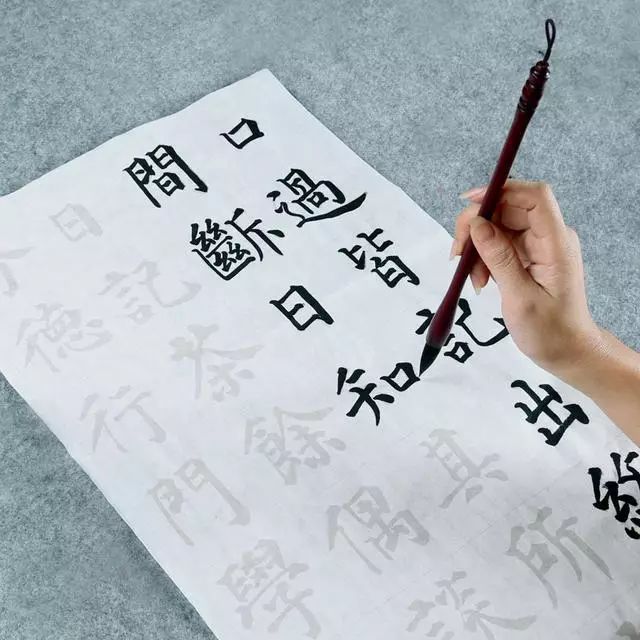 口過皆記出終
間斷日知其所
日記茶餘偶談
德行門學